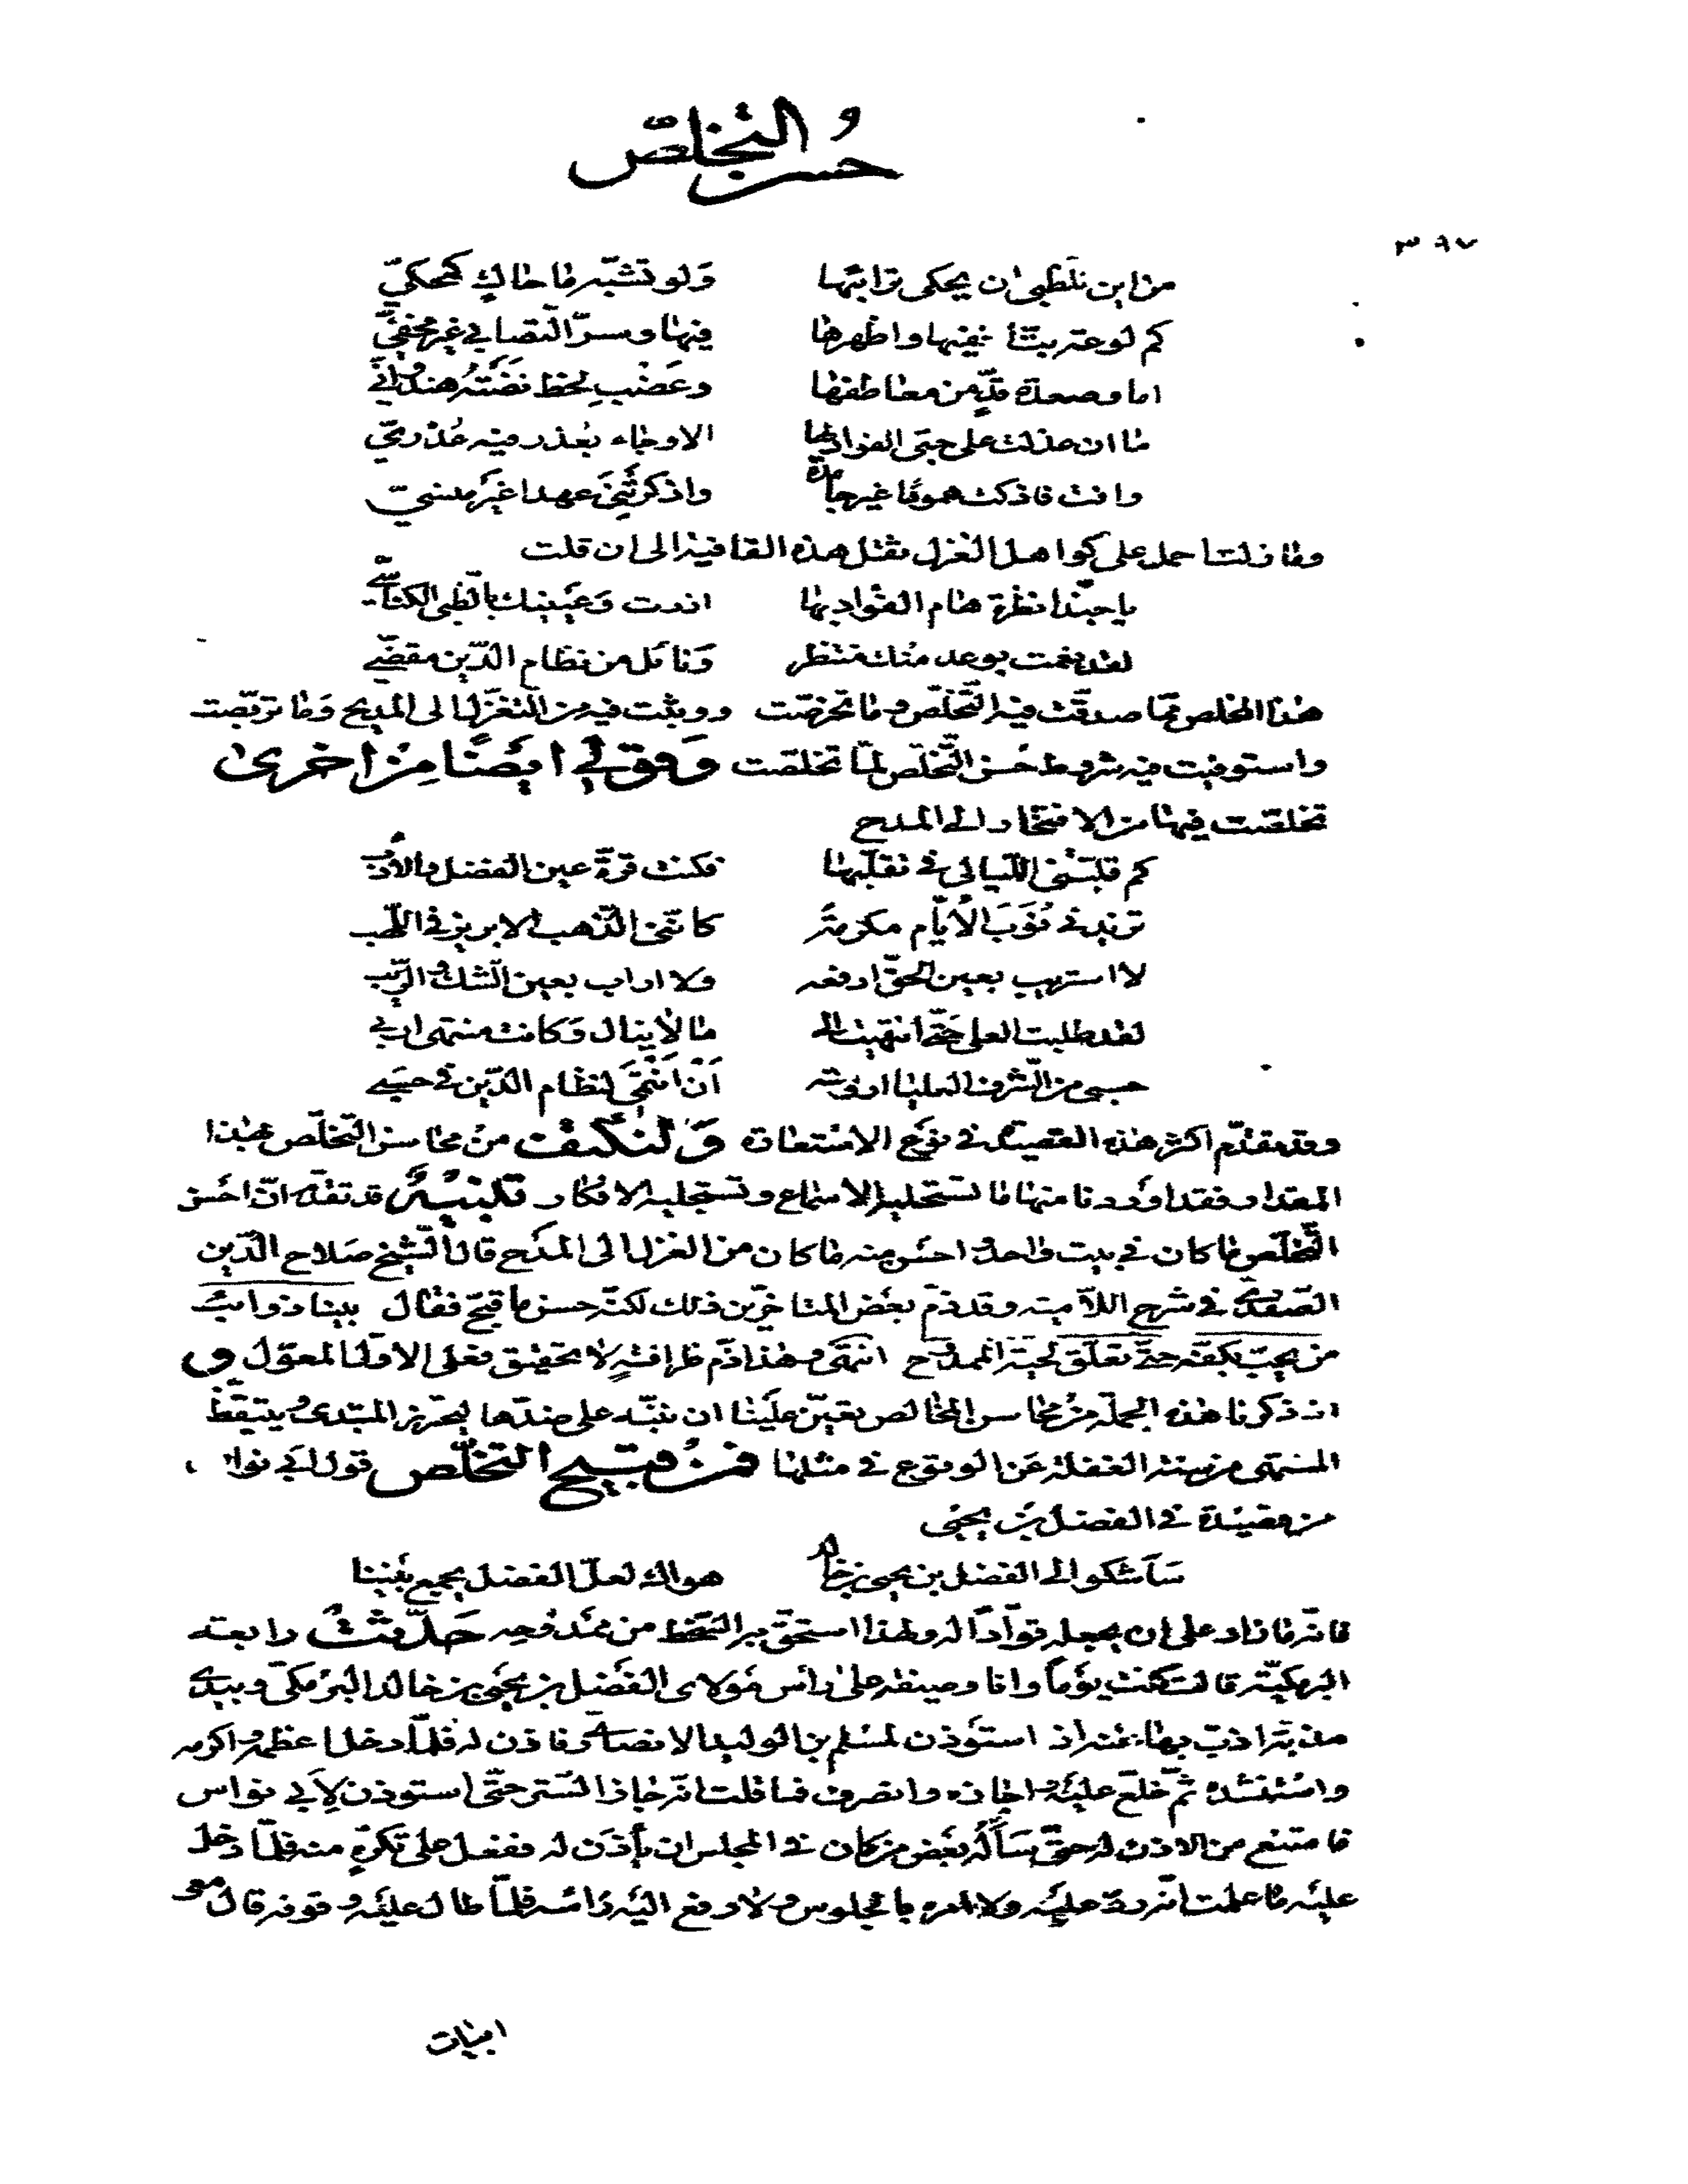 حسن التخلّص
٣٩٧
من اين للظبى ان يحكى ترائبها ولو تشبّه ما حاك كمحكىّ
كم لوعة بتّ اخفيها واظهرها فيها وسرّ التصابي غير مخفىّ
اما وصعدة قدّ من معاطفها وعَضْب لحظ نضته هندوانىّ
ما ان عذلت على حبّى الفؤاد لها الا وجاء بعذر فيه عذرىّ
وانت فاذكت هموما غير جامدة واذكرتنى عهدا غير منسىّ
وما زلت احمل على كواهل الغزل ثقل هذه القافية الى ان قلت
يا حبّذا نظرة هام الفؤاد بها ازرت وعينيك بالظبى الكناسىّ
لقد نعمت بوعد منك منتظر ونائل من نظام الدّين مقضىّ
هذا المخلص ممّا صدقت فيه التّخلّص وما تخرّصت ووثبت فيه من التغزّل الى المديح وما تربّصت
واستوفيت فيه شروط حُسن التّخلّص لمّا تخلصت وقولي ايضًا من اخرى
تخلصت فيها من الافتخار الى المدح
كم قلبتنى اللّيالى فى تقلّبها فكنت قرّة عين الفضل والادب
تزيدنى نُوَب الأيّام مكرمة كانّنى الذّهب الابريز فى اللّهب
لا استريب بعين الحقّ ادفعه ولا اراب بعين الشك والرّيب
لقد طلبت العلى حتّى انتهيت الى ما لا ينال وكانت منتهى اربي
حسبى من الشّرف العليا ارومته أن انتمى لنظام الدّين فى حسبي
وقد تقدّم اكثر هذه القصيدة فى نوع الاستعارة ولنكتف من محاسن التخلّص بهذا
المقدار فقد اوردنا منها ما تستحليه الاسماع وتستجليه الافكار تنبيه قد تقدّم انّ احسن
التّخلّص ما كان في بيت واحد واحسن منه ما كان من الغزل الى المدح قال الشّيخ صلاح الدّين
الصّفدى في شرح اللاميّة وقد ذمّ بعض المتاخّرين ذلك لكنّه حسن ما قبّح فقال بينا ذوابت
من يحبّ بكفّه حتّى تعلّق لحية الممدوح انتهى وهذا ذمّ ظرافةٍ لا تحقيق فعلى الاوّل المعوّل و
اذ ذكرنا هذه الجملة من محاسن المخالص تعيّن علينا ان ننبّه على ضدّها ليحترز المبتدى ويتيقّظ
المنتهى من سِنة الغفلة عن الوقوع في مثلها فمن قبيح التخلّص قول ابي نواس
من قصيدة في الفضل بن يحيى
سَأشكو الى الفضل بن يحيى بن خالد هواك لعلّ الفضل يجمع بيننا
فانّه ما زاد على ان يجعله قوّادًا له ولهذا استحقّ به السّخط من ممدوحه حدّثت رابعة
البرمكيّة قالت كنت يومًا وانا وصيفة على رأس مولاى الفضل بن يحيى بن خالد البرمكىّ وبيدى
مذبّة اذبّ بها عنه اذ استؤذن لمسلم بن الوليد الانصارى فاذن له فلمّا دخل اعظمه واكرمه
واستنشده ثمّ خلع عليه واجازه وانصرف فما قلت انّه جاز السّتر حتّى استوذن لأبي نواس
فامتنع من الاذن له حتّى سأله بعض من كان في المجلس ان يأذن له ففعل على تكرّه منه فلمّا دخل
عليه ما علمت انّه ردّ عليه ولا امره بالجلوس ولا رفع اليه رأسه فلمّا طال عليه وقوفه قال معى
ابيات